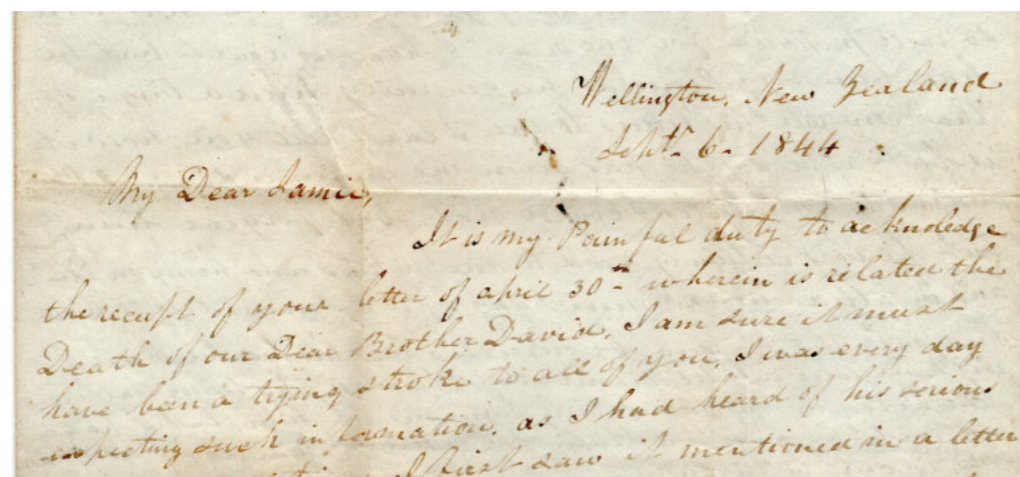 Wellington, New Zealand
Sept.r 6 - 1844
My Dear Jamie,
It is my Painful duty to acknoledge
the receipt of your letter of april 30th wherein is related the
Death of our Dear Brother David, I am sure it must
have been a trying stroke to all of you, I was every day
expecting such information, as I had heard of his serious
I first saw it mentioned in a letter